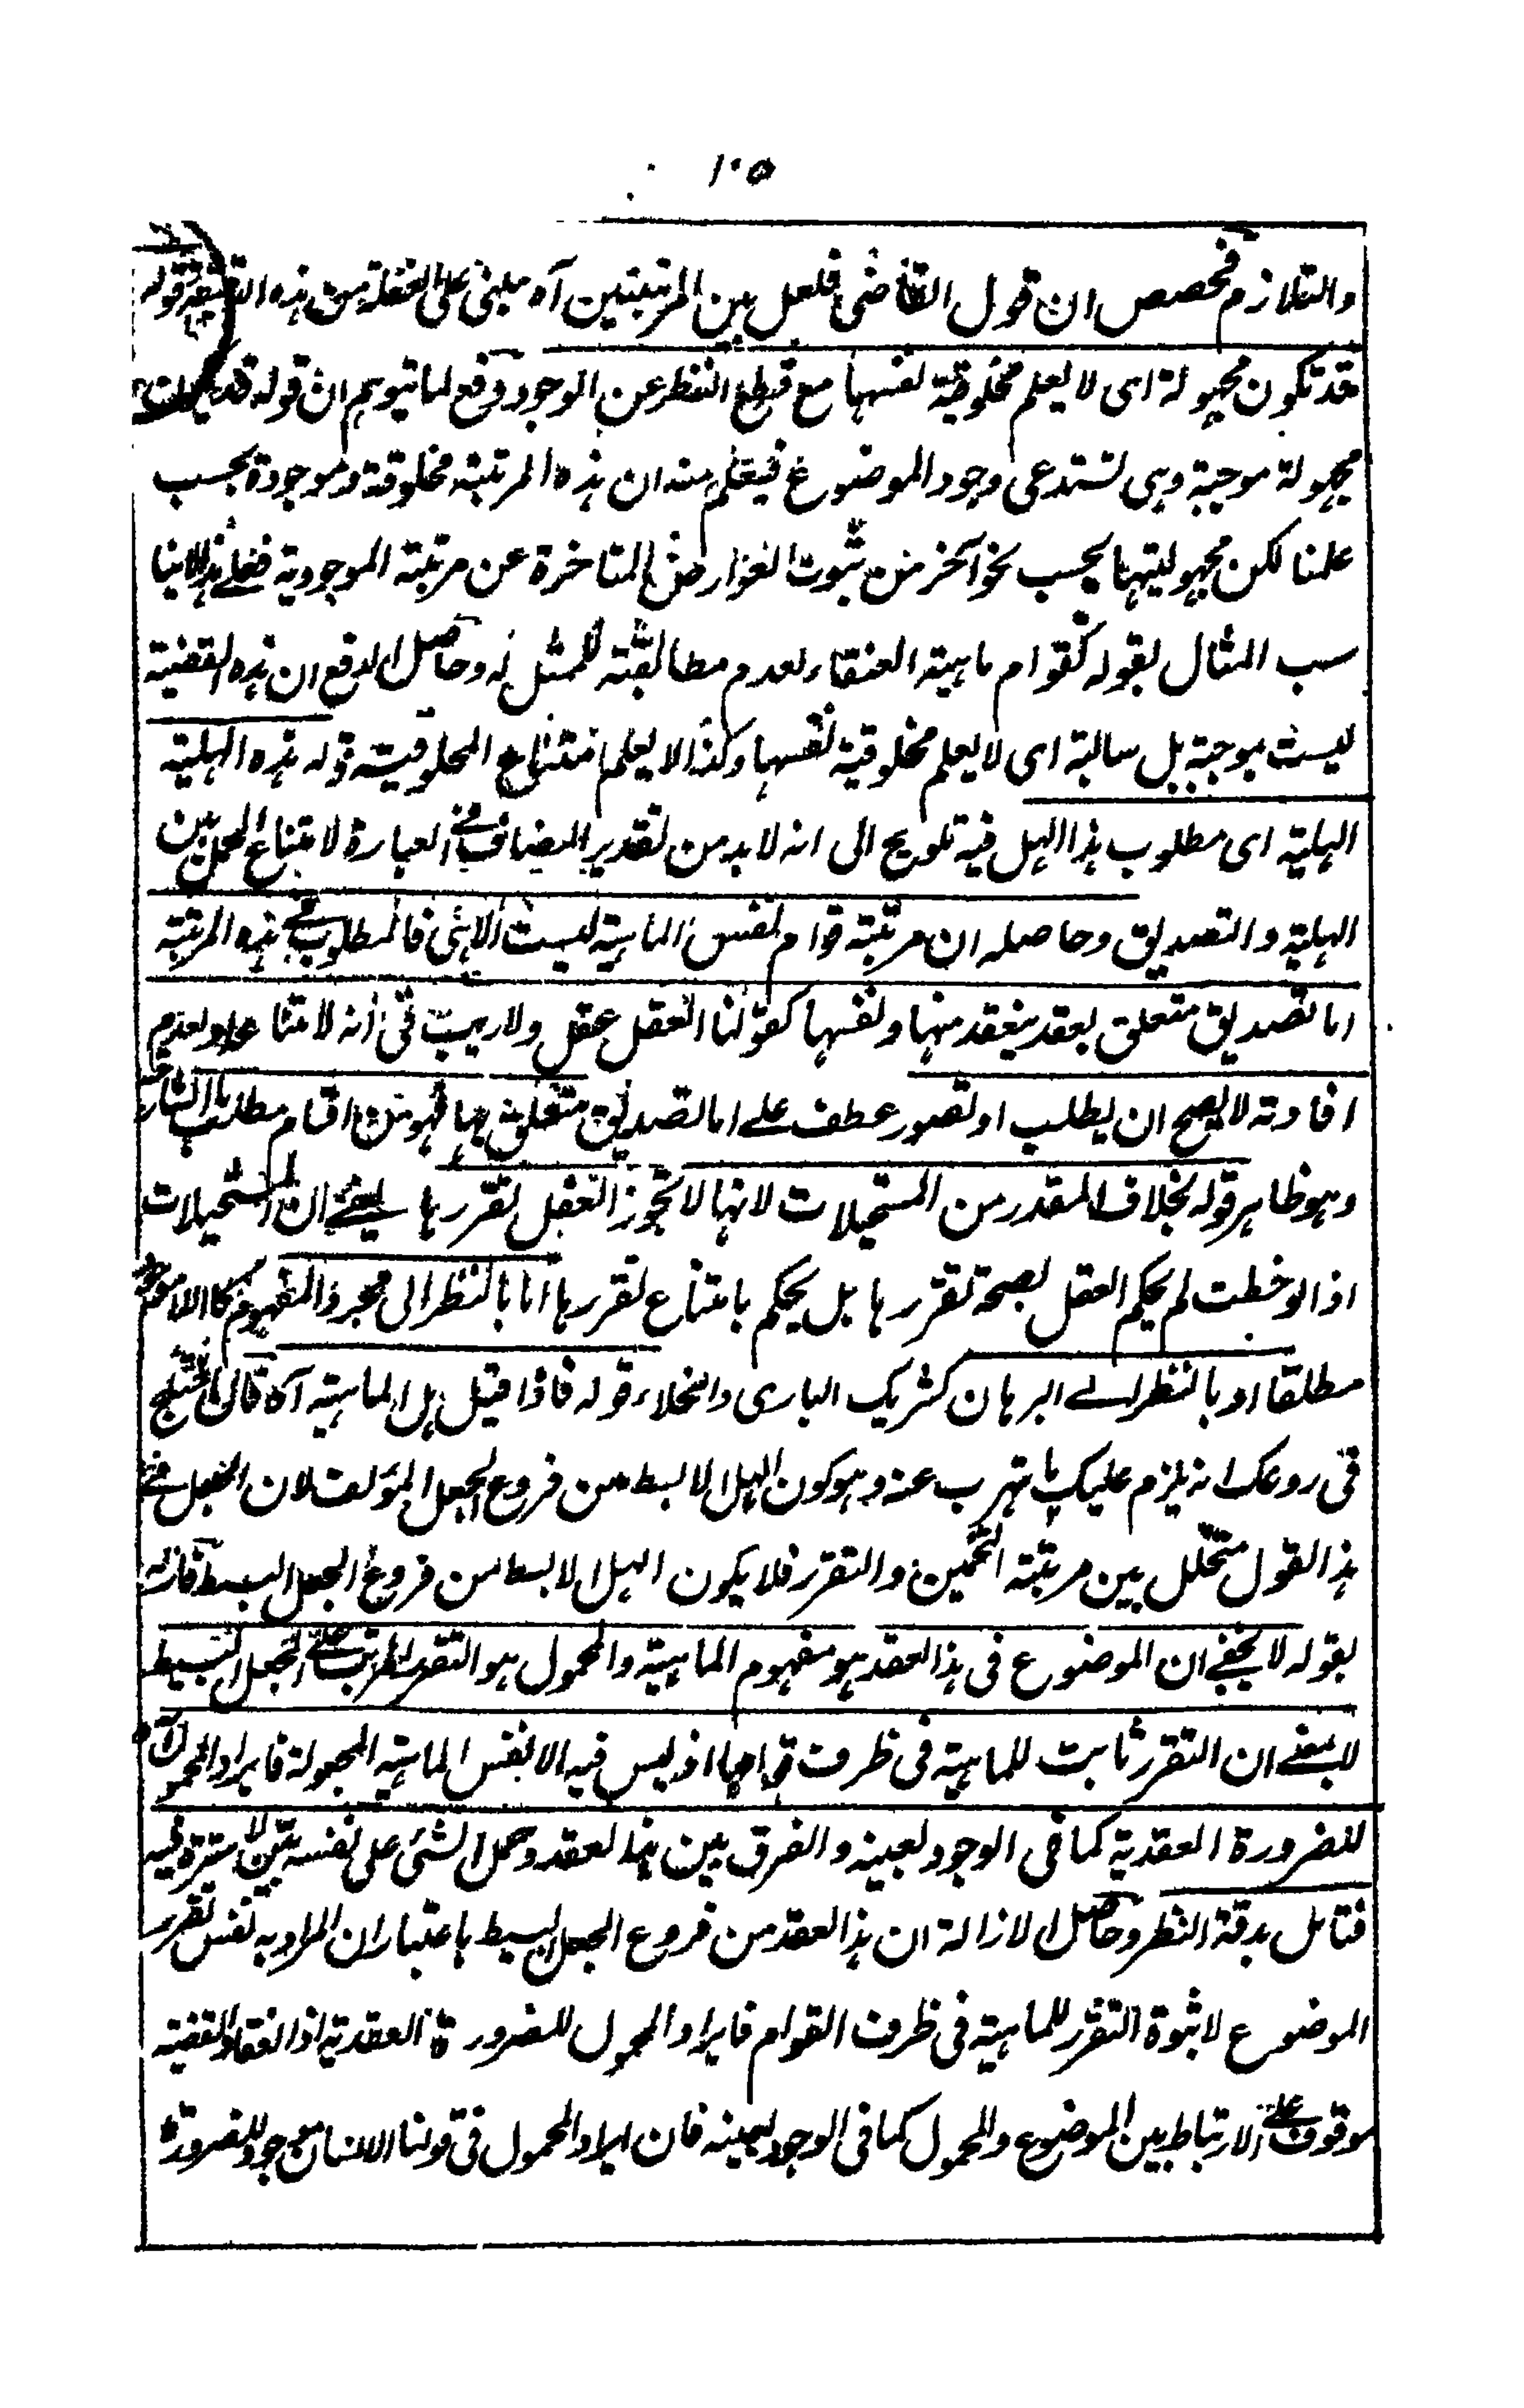 ١٠٥
والتلازم فحصص ان قول القاضى فلعل بين المرتبتين آه مبنى على الغفلة من هذه الدقيقة قوله
قد تكون مجهولة اى لا يعلم مخلوقية نفسها مع قطع النظر عن الوجود دفع لما يتوهم ان قوله قد يكون
مجهولة موجبة وهى تستدعى وجود الموضوع فيعلم منه ان هذه المرتبة مخلوقة وموجودة بحسب
علمنا لكن مجهوليتها بحسب نحو آخر من ثبوت العوارض المتاخرة عن مرتبة الموجودية فعلى هذا لا ينا
سب المثال بقوله كقوام ماهية العنقاء لعدم مطابقته للممثل له وحاصل الدفع ان هذه القضية
ليست بموجبة بل سالبة اى لا يعلم مخلوقية نفسها وكذا لا يعلم امتناع المخلوقية قوله هذه الهلية
الهلية اى مطلوب هذا الهل فيه تلويح الى انه لا بد من تقدير المضاف فى العبارة لامتناع الحمل بين
الهلية والتصديق وحاصله ان مرتبة قوام نفس الماهية ليست الا هى فالمطلوب فى هذه المرتبة
اما تصديق متعلق بعقد ينعقد منها ونفسها كقولنا العقل عقل ولا ريب فى انه لامتناعه او لعدم
افادته لا يصح ان يطلب او تصور عطف على اما تصديق متعلق بها فهو من اقسام مطلب ما الشارحة
وهو ظاهر قوله بخلاف المقدر من المستحيلات لانها لا تجوز العقل تقررها يعنى ان المستحيلات
اذا لوحظت لم يحكم العقل بصحة تقررها بل يحكم بامتناع تقررها اما بالنظر الى مجرد المفهوم كاللا موجود
مطلقا او بالنظر الى البرهان كشريك البارى والخلاء قوله فاذا قيل هل الماهية آه قال يختلج
فى روعك انه يلزم عليك ما تهرب عنه وهو كون الهل الابسط من فروع الجعل المؤلف لان الجعل فى
هذا القول متخلل بين مرتبة التخمين والتقرر فلا يكون الهل الابسط من فروع الجعل البسيط فازاله
بقوله لا يخفى ان الموضوع فى هذا العقد هو مفهوم الماهية والمحمول هو التقرر المرتب على الجعل البسيط
لا بمعنى ان التقرر ثابت للماهية فى ظرف قوامها اذ ليس فيه الا نفس الماهية المجعولة فايراد المحمول
للضرورة العقدية كما فى الوجود بعينه والفرق بين هذا العقد وحمل الشئ على نفسه بين لا سترة فيه
فتامل بدقة النظر وحاصل الازالة ان هذا العقد من فروع الجعل البسيط باعتبار ان المراد به نفس تقرر
الموضوع لا ثبوة التقرر للماهية فى ظرف القوام فايراد المحمول للضرورة العقدية اذ انعقاد القضية
موقوف على الارتباط بين الموضوع والمحمول كما فى الوجود بعينه فان ايراد المحمول فى قولنا الانسان موجود للضرورة